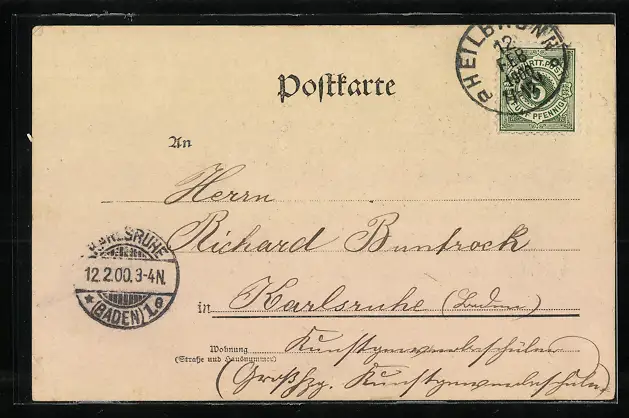 HEILBRONN
12
FEB
1900
WÜRTT. POST
5
FÜNF PFENNIG
Postkarte
An
Herrn
Richard Buntrock
KARLSRUHE
12.2.00.3-4N.
★ (BADEN) 1.e
in Karlsruhe (Baden)
Wohnung
(Straße und Hausnummer)
Kunstgewerbeschüler
(Großhzg. Kunstgewerbeschule)